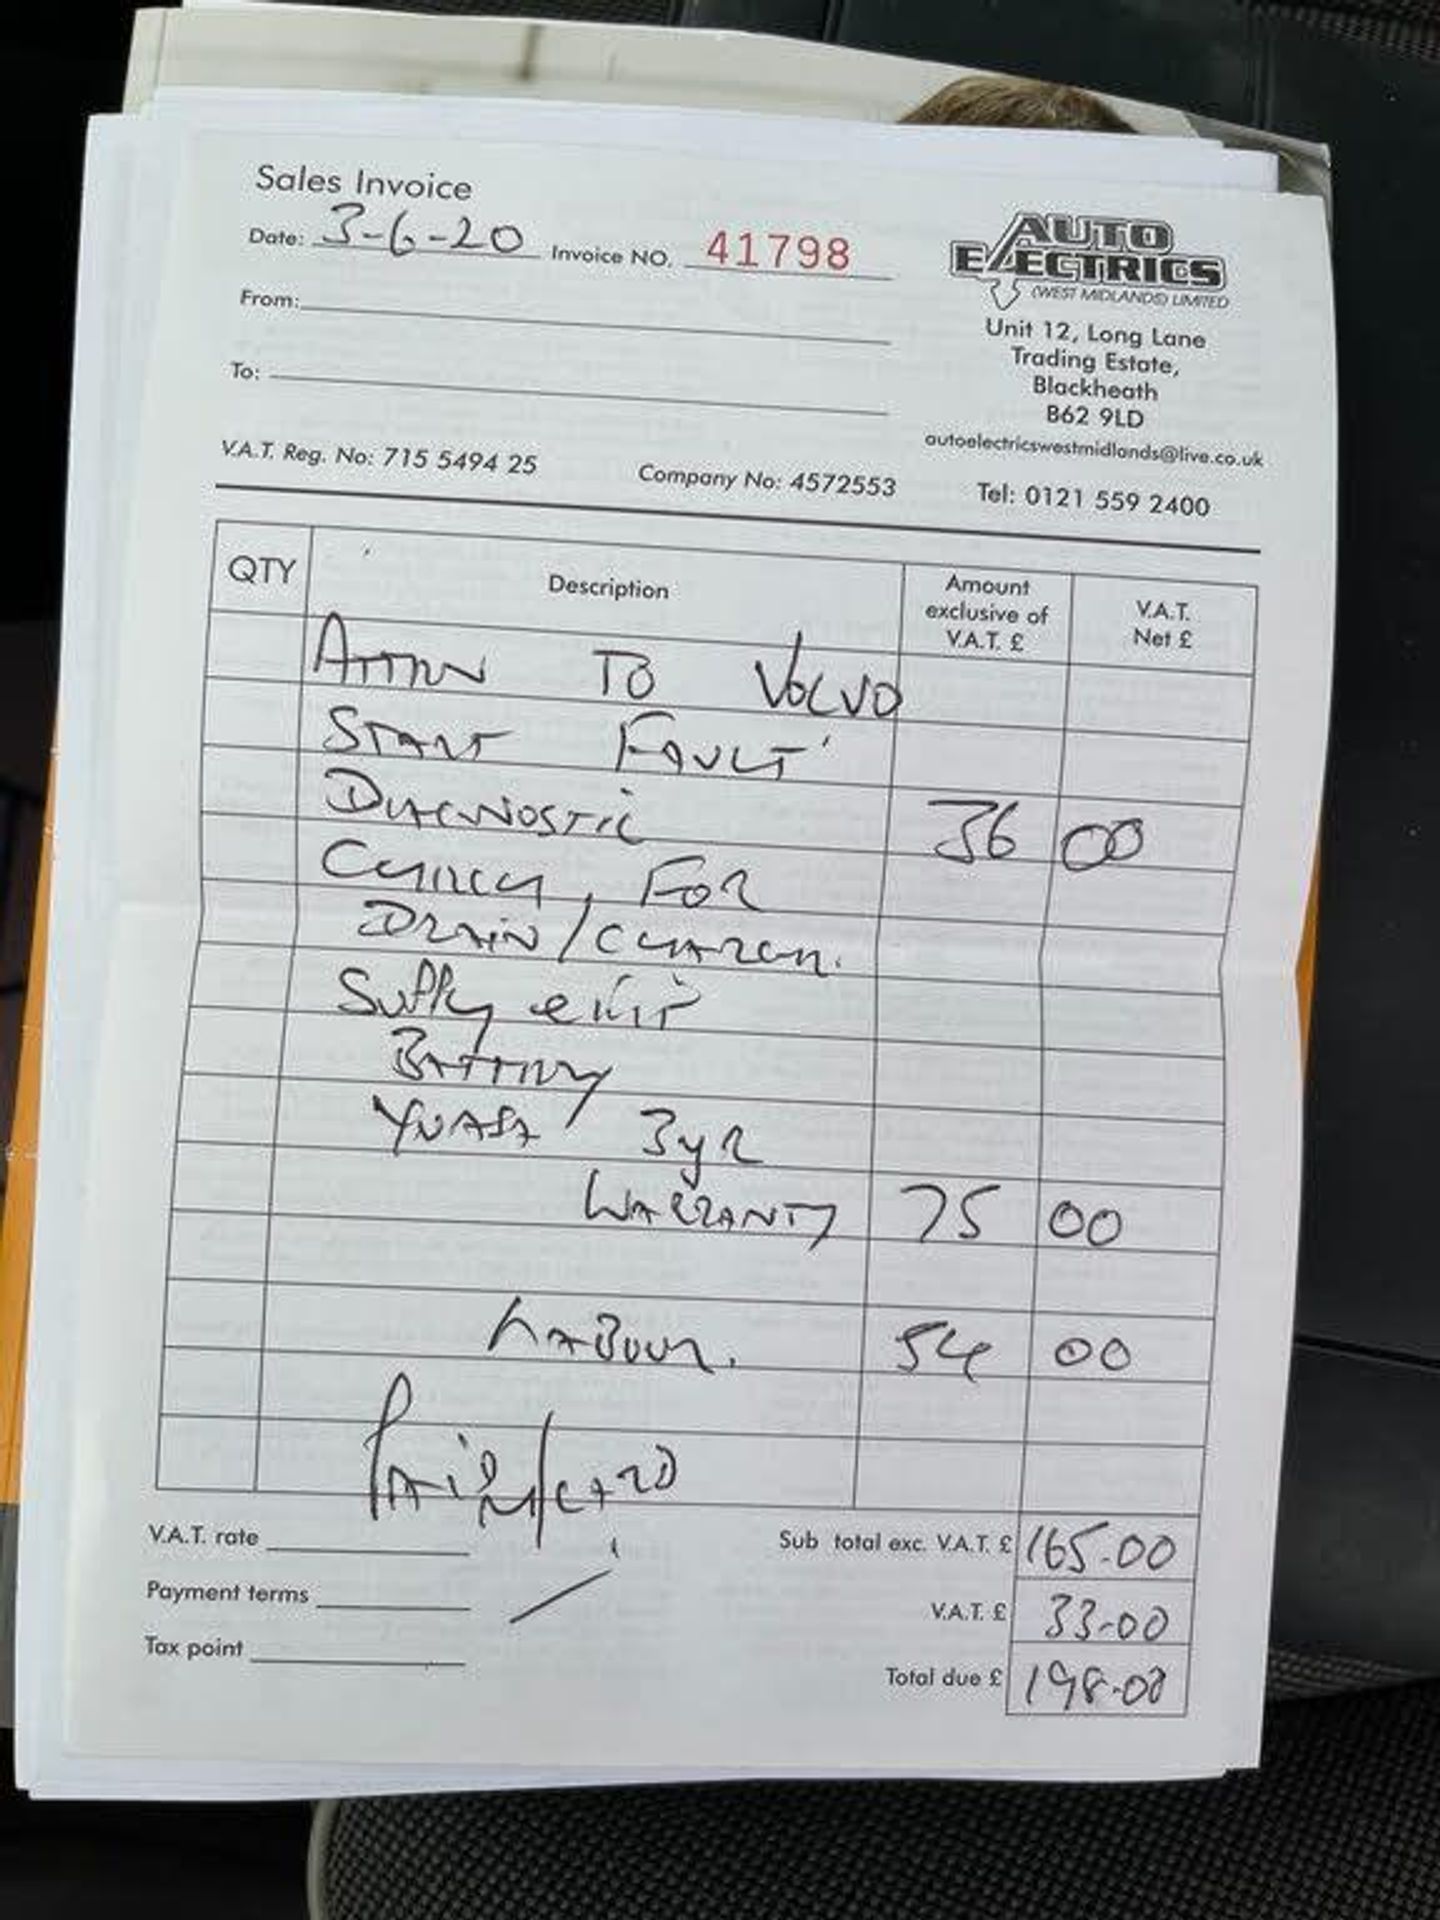 Sales Invoice
Date: 3-6-20 Invoice NO. 41798
AUTO
ELECTRICS
(WEST MIDLANDS) LIMITED
From:
To:
Unit 12, Long Lane
Trading Estate,
Blackheath
B62 9LD
autoelectricswestmidlands@live.co.uk
V.A.T. Reg. No: 715 5494 25 Company No: 4572553 Tel: 0121 559 2400
QTY Description Amount exclusive of V.A.T. £ V.A.T. Net £
TO VOLVO
START FAULT
DIAGNOSTIC 36 00
CHECK, FOR
DRAIN/CHARGE.
Supply &
BATTERY
YUASA 3yR
WARRANTY 75 00
LABOUR. 54 00
PAID M/CARD
V.A.T. rate Sub total exc. V.A.T. £ 165.00
Payment terms V.A.T. £ 33-00
Tax point Total due £ 198.00